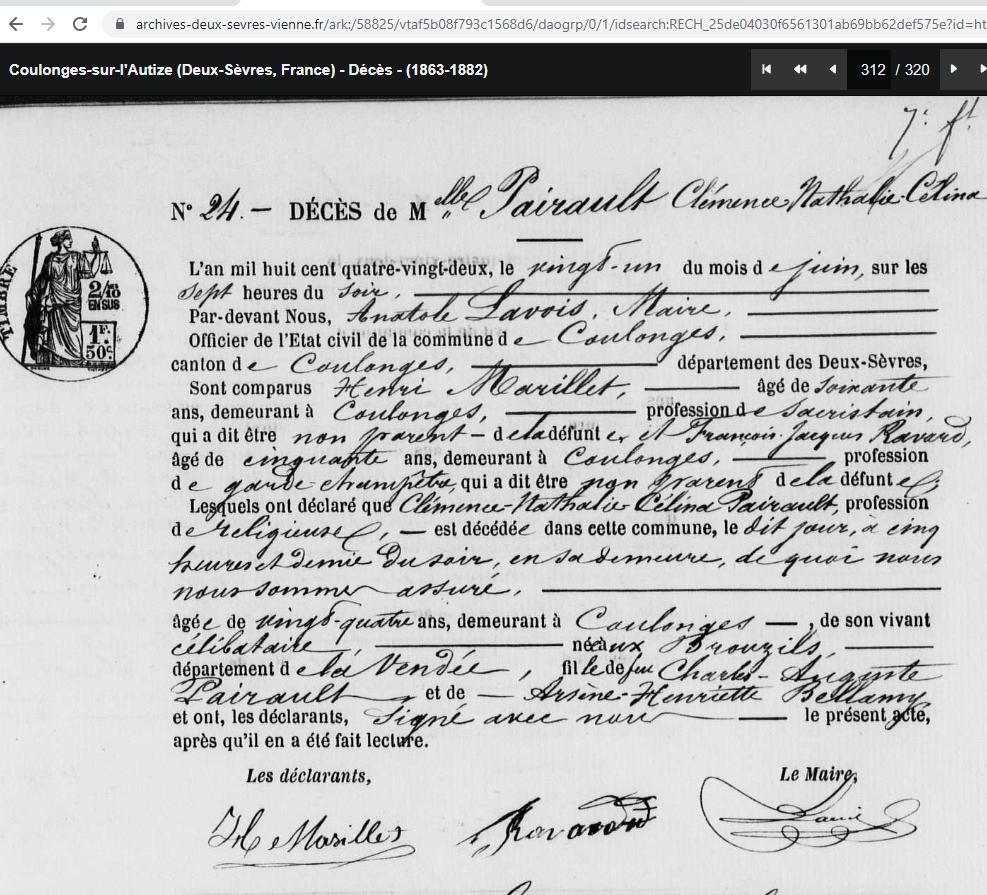 archives-deux-sevres-vienne.fr/ark:/58825/vtaf5b08f793c1568d6/daogrp/0/1/idsearch:RECH_25de04030f6561301ab69bb62def575e?id=ht
Coulonges-sur-l'Autize (Deux-Sèvres, France) - Décès - (1863-1882)
312 / 320
N° 24. — DÉCÈS de Melle Pairault Clémence Nathalie Célina
TIMBRE
2/10
EN SUS
1F.
50c
L'an mil huit cent quatre-vingt-deux, le vingt-un du mois de juin, sur les
sept heures du soir,
Par-devant Nous, Anatole Lavois, Maire,
Officier de l'Etat civil de la commune de Coulonges,
canton de Coulonges, département des Deux-Sèvres,
Sont comparus Henri Marillet, âgé de soixante
ans, demeurant à Coulonges, profession de sacristain,
qui a dit être non parent - de la défunte, et François-Jacques Ravard,
âgé de cinquante ans, demeurant à Coulonges, profession
de garde-champêtre, qui a dit être non parent de la défunte.
Lesquels ont déclaré que Clémence-Nathalie-Célina Pairault, profession
de religieuse, — est décédée dans cette commune, le dit jour, à cinq
heures et demie du soir, en sa demeure, de quoi nous
nous sommes assuré,
âgée de vingt-quatre ans, demeurant à Coulonges —, de son vivant
célibataire, née aux Brouzils,
département de la Vendée, fille de feu Charles-Auguste
Pairault et de — Arsène-Henriette Bellamy
et ont, les déclarants, signé avec nous — le présent acte,
après qu'il en a été fait lecture.
Les déclarants, Le Maire,
H Marillet Ravard